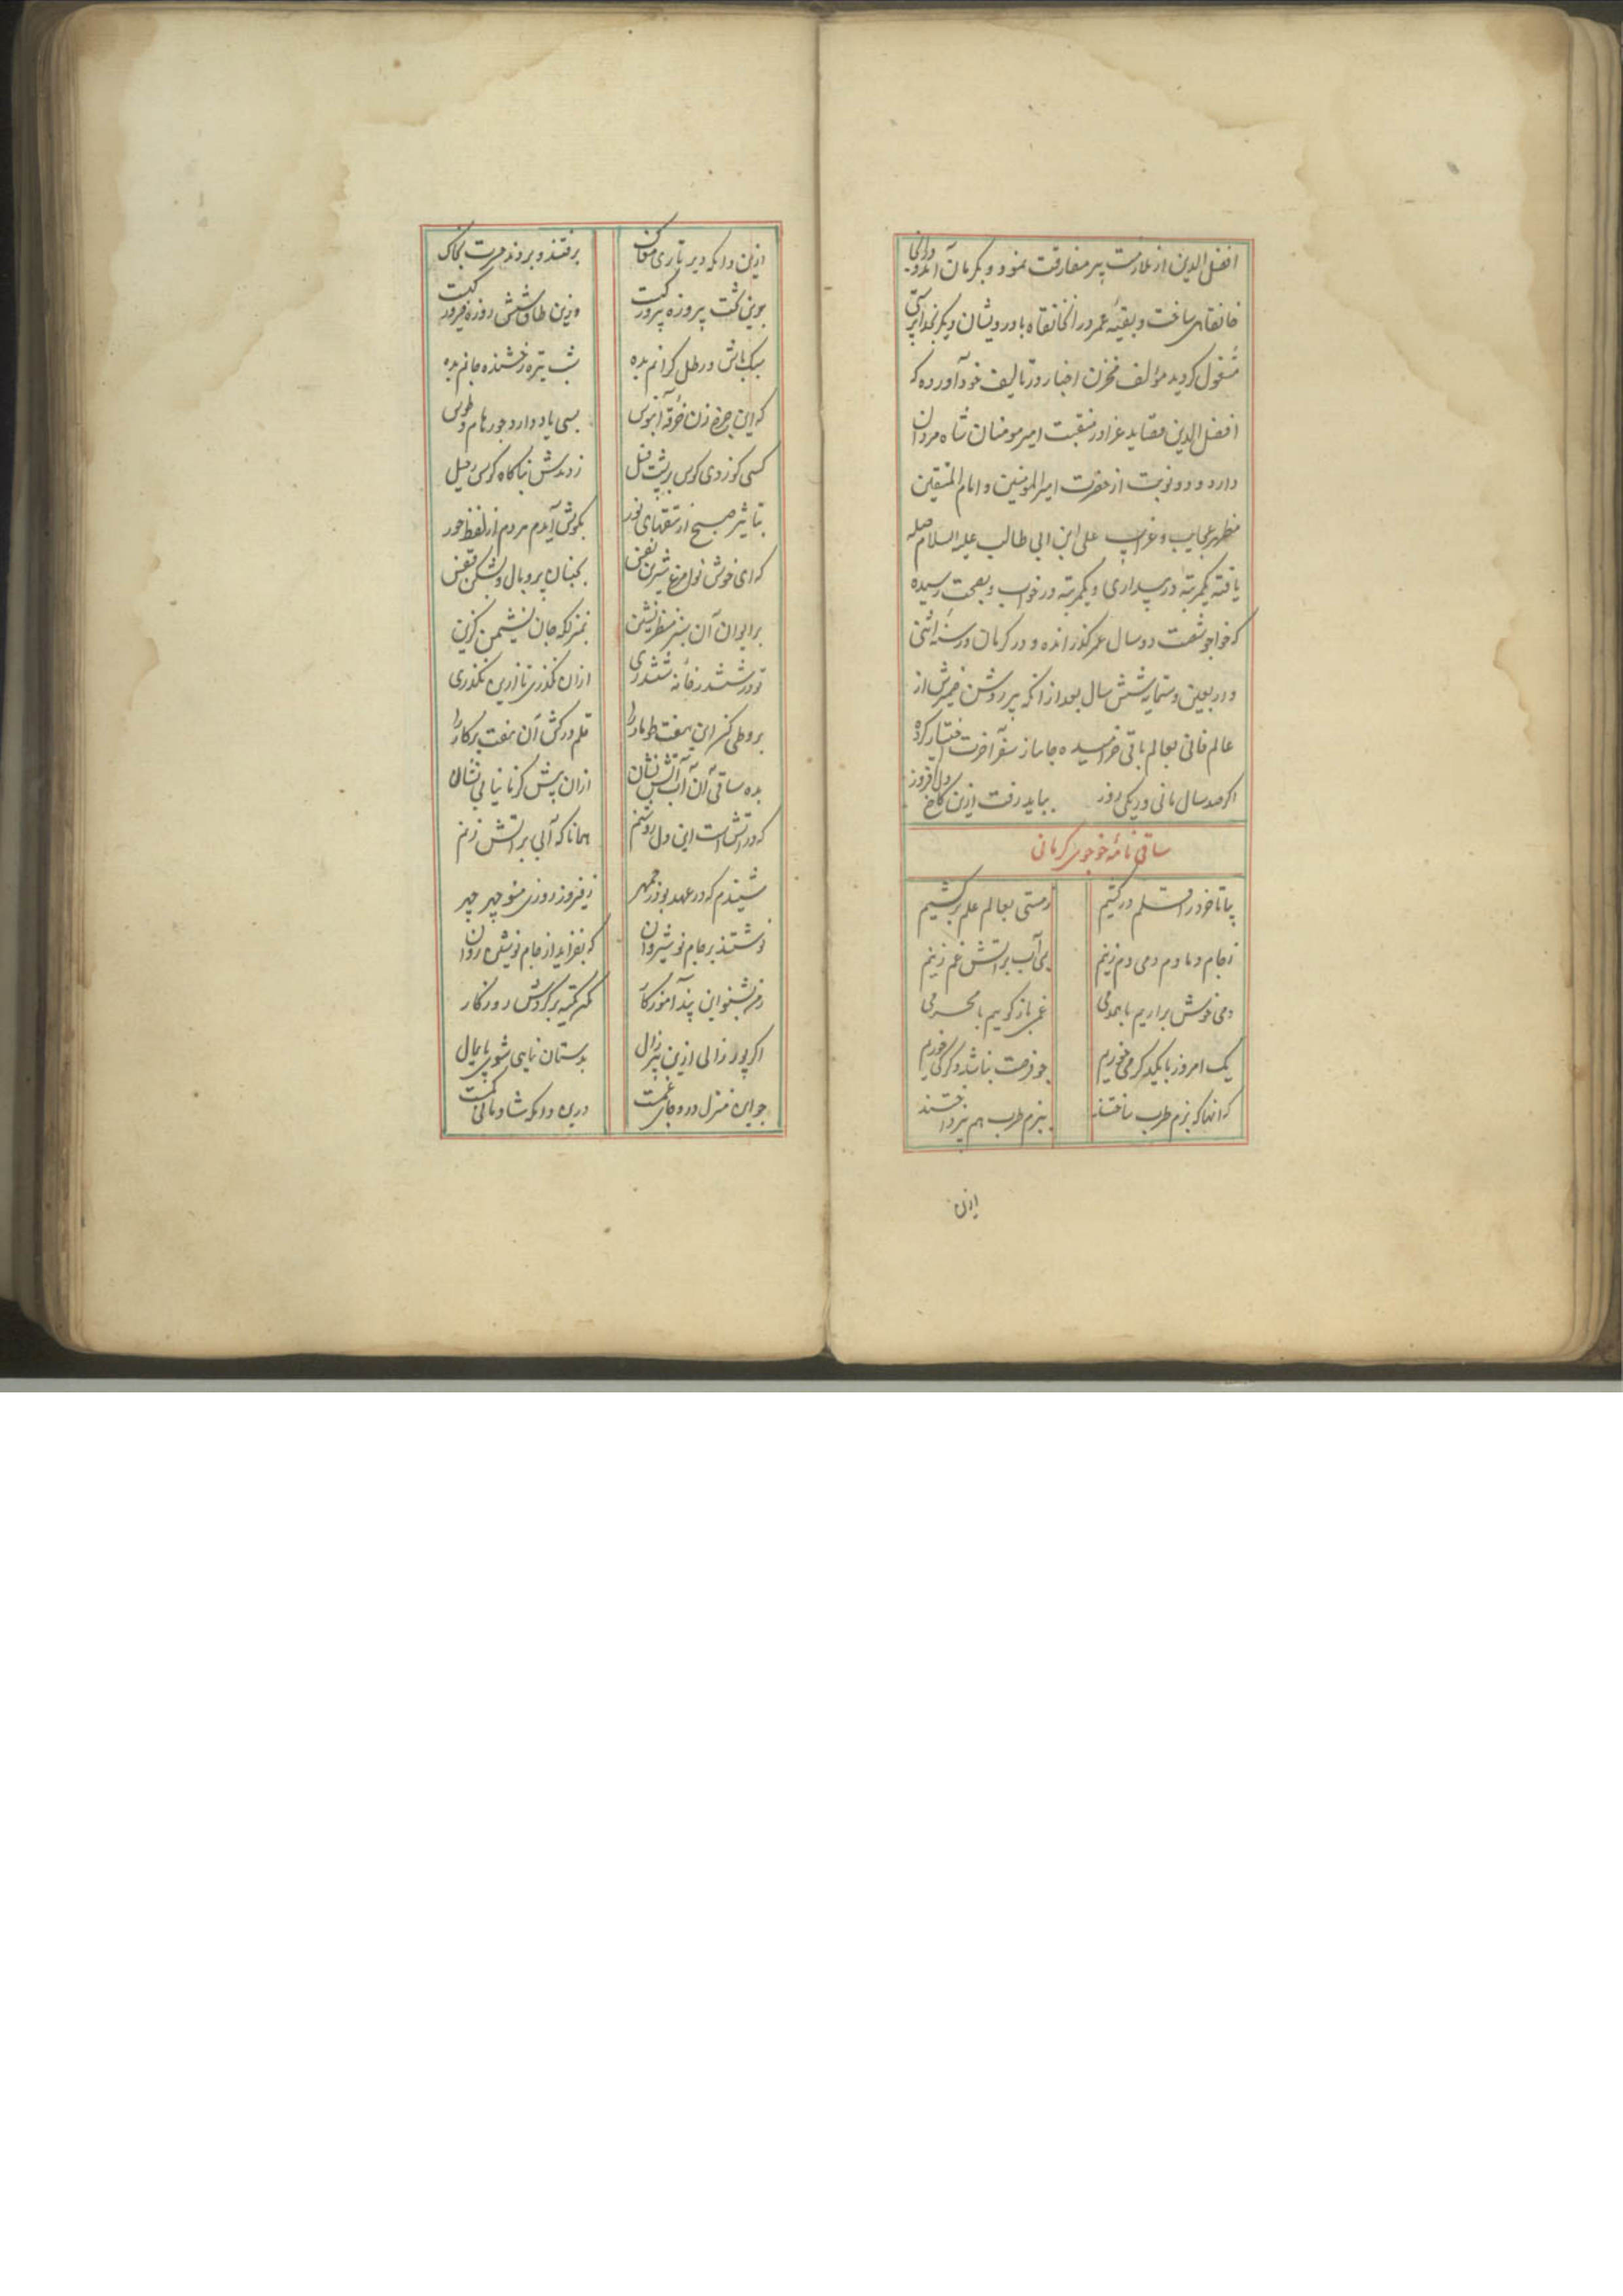 افضل الدین از ملازمت پیر مفارقت نمود و بکرمان آمد و در انجا
خانقاهی ساخت و بقیهٔ عمر در انخانقاه با درویشان دیکر بخداپرستی
مشغول کردید مؤالف مخزن اخبار در تالیف خود آورده که
افضل الدین قصاید غرا در منقبت امیر مومنان شاه مردان
دارد و دو نوبت از حضرت امیر المومنین و امام المتقین
مظهر عجایب و غرایب علی ابن ابی طالب علیه السلام صله
یافته یکمرتبه در بیداری و یکمرتبه در خواب و بصحت رسیده
که خواجو شصت دو سال عمر کذرانده و در کرمان در سنه اثنی
و اربعین و ستمایه شش سال بعد از انکه پیر روشن ضمیرش از
عالم فانی بعالم باقی خرامیده جاماز سفر آخرت اختیار کرد
اکر صد سال مانی ور یکی روز بباید رفت ازین کاخ دل افروز
ساقی نامهٔ خوجوی کرمانی
بیا تا خرد را قلم در کشیم ز مستی بعالم علم بر کشیم
ز جام دمادم دمی دم زنیم بمی آب بر اتش غم زنیم
دمی خوش براریم با همدمی غمی باز کوییم با محرمی
یک امروز با یکدکر می خوریم چو فرصت نباشد دکر کی خوریم
که انها که بزم طرب ساختند ببزم طرب هم نپرداختند
ازین
ازین دامکه دیر تاری مغاک برفتند و بردند حسرت بخاک
بدین تخت پیروزه پیروز کیست وزین طاق شش روزه فیروز کیست
سبک باش و رطل کرانم بده شب تیره رخشنده جانم بده
که این چرخ زن خرقه آبنوس بسی یاد دارد چو رهام و طوس
کسی کو زدی کوس بر پشت فیل زدندش بناکاه کوس رحیل
تباشیر صبح از تتقهای نور بکوش آیدم هر دم از لفظ حور
که ای خوش نوا مرغ شیرین نفس بجنبان پر و بال و بشکن قفس
بر ایوان آن سبز منظر نشین بمنزلکه جان نشیمن کزین
تو در ششدر خانهٔ ششدری ازان نکذری تا ازین نکذری
برو طی کن این هفت طومار را قلم در کش آن هفت پرکار را
بده ساقی آن آب آتش نشان ازان پیش کز ما نیابی نشان
که در اتش است این دل روشنم همانا که آبی بر اتش زنم
شنیدم که در عهد بوذرجمهر ز فیروز روزی منوچهر چهر
نوشتند بر جام نوشیروان که بفزاید از جام نوشین روان
ز من بشنو این پند آموزکار مکن تکیه بر کردش روزکار
اکر پور زالی ازین پیر زال بدستان نیابی شوی پایمال
چو این منزل درد و جای غمست درین دامکه شادمانی کمست